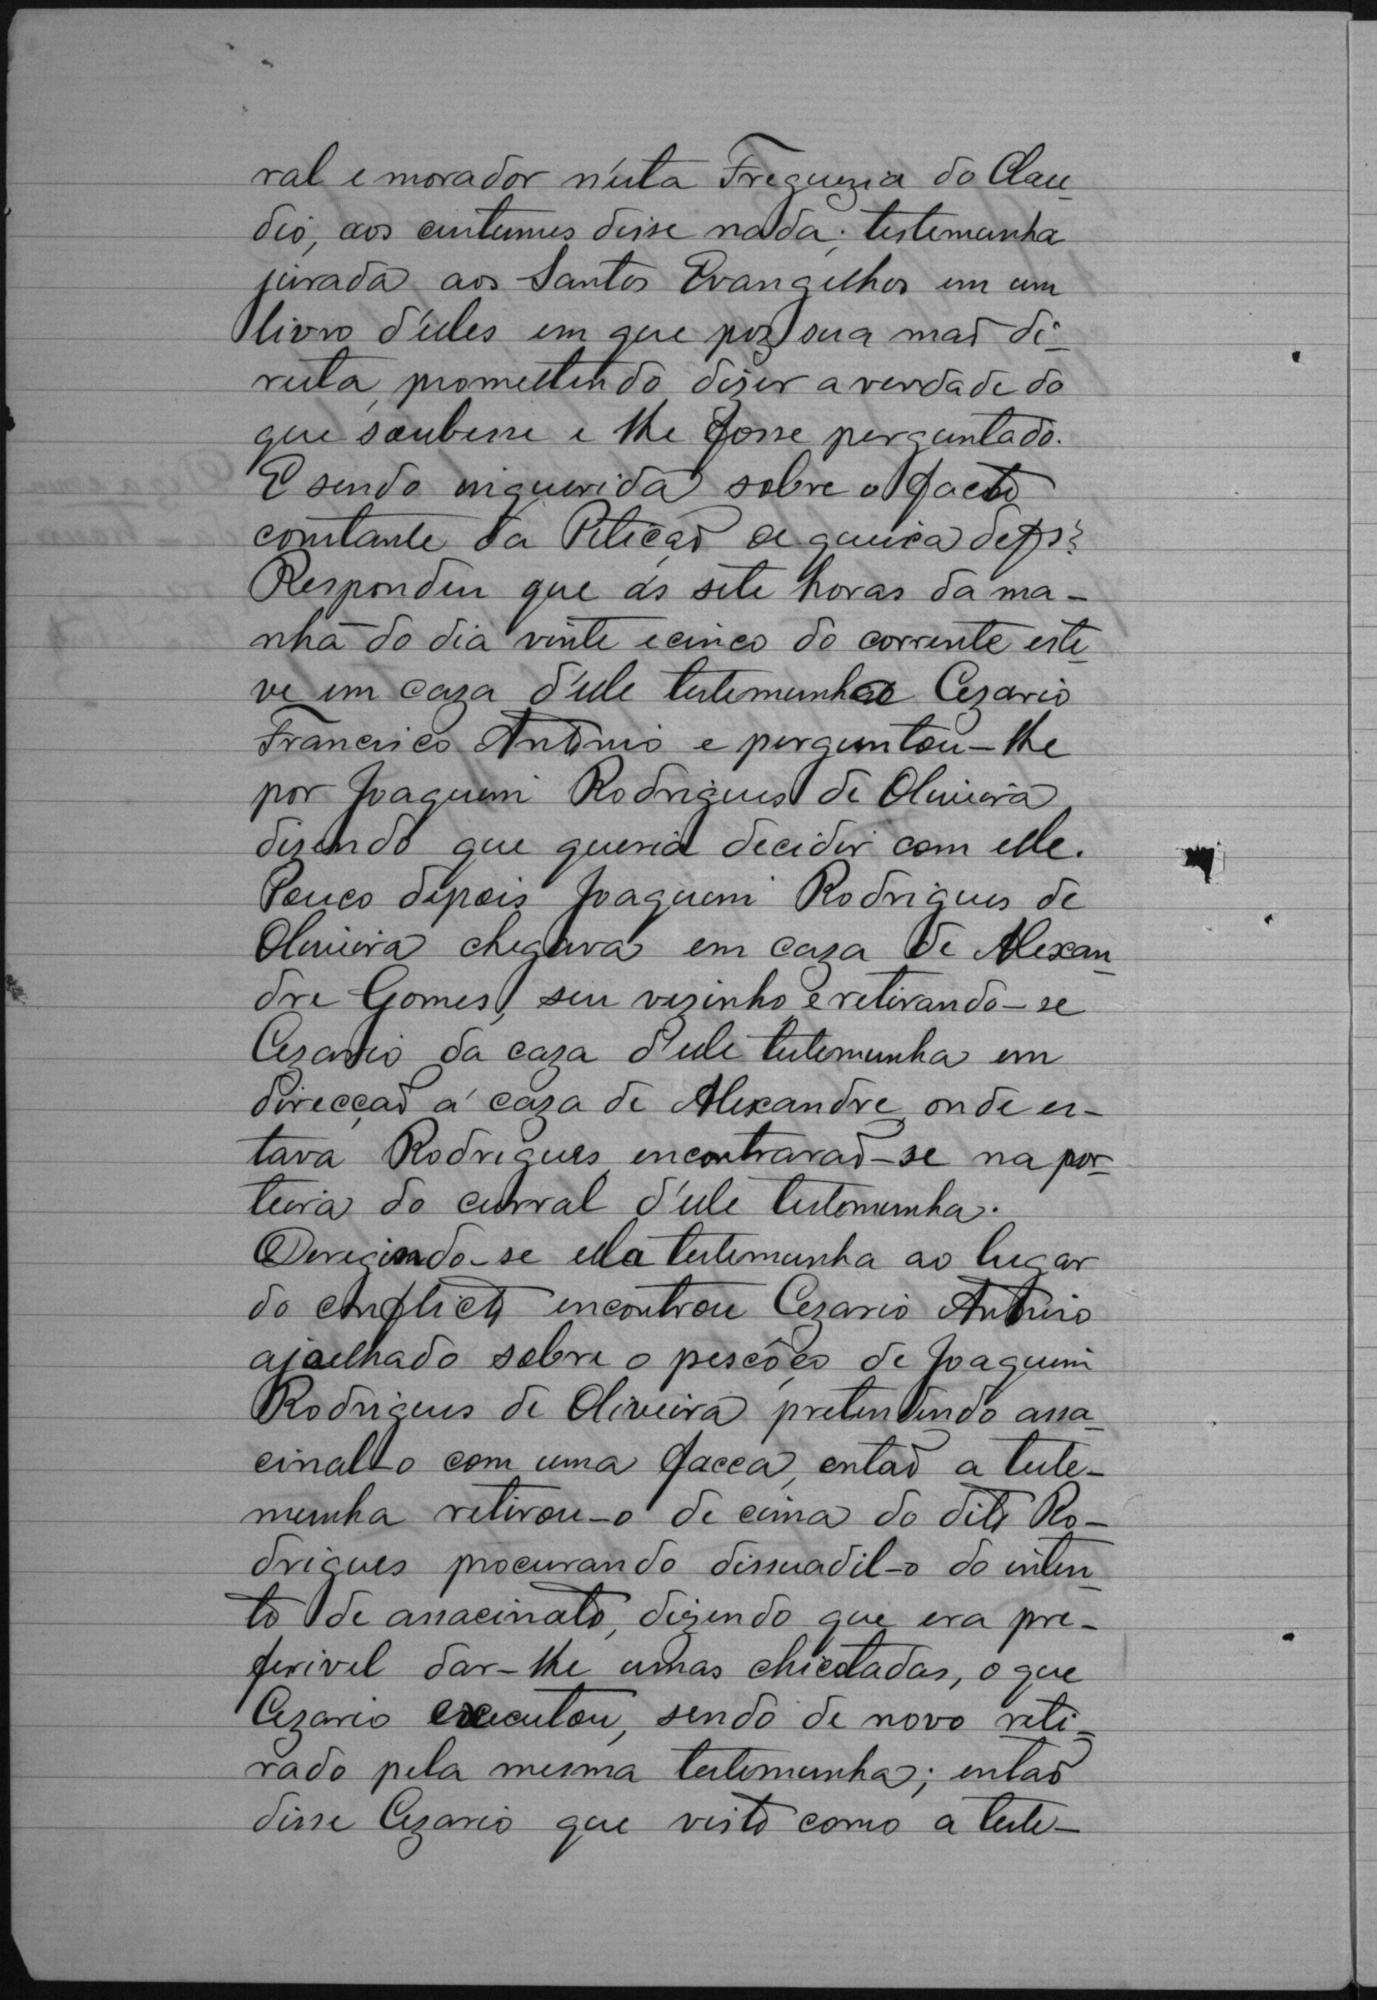 ral e morador n'esta Freguezia do Clau-
dio, aos custumes disse nada; testemunha
jurada aos Santos Evangelhos em um
livro d'elles em que poz sua maõ di-
reita, promettendo dizer a verdade do
que soubesse e lhe fosse perguntado.
E sendo inquerida sobre o facto
constante da Petiçaõ de queixa de fs?
Respondeu que ás sete horas da ma-
nhã do dia vinte e cinco do corrente este-
ve em caza d'elle testemunha Cezario
Francisco Antonio e perguntou-lhe
por Joaquim Rodrigues de Oliveira
dizendo que queria decidir com elle.
Pouco depois Joaquim Rodrigues de
Oliveira chegava em caza de Alexan-
dre Gomes, seu vezinho, e retirando-se
Cezario da caza d'elle testemunha em
direcçaõ á caza de Alexandre, onde es-
tava Rodrigues, encontraraõ-se na por-
teira do curral d'elle testemunha.
Deregindo-se ella testemunha ao lugar
do conflicto encontrou Cezario Antonio
ajoelhado sobre o pescôço de Joaquim
Rodrigues de Oliveira pretendendo assa-
cinal-o com uma facca, entaõ a teste-
munha retirou-o de cima do dito Ro-
drigues procurando dissuadil-o do inten-
to de assacinato, dizendo que era pre-
ferivel dar-lhe umas chicotadas, o que
Cezario executou, sendo de novo reti-
rado pela mesma testemunha; entaõ
disse Cezario que visto como a teste-